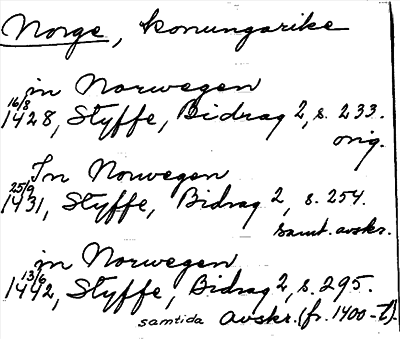 Norge, konungarike
in Norwegen
16/8 1428, Styffe, Bidrag 2, s. 233.
orig.
In Norwegen
25/9 1431, Styffe, Bidrag 2, s. 254.
samt. avskr.
in Norwegen
13/6 1442, Styffe, Bidrag 2, s. 295.
samtida avskr. (fr. 1400-t).